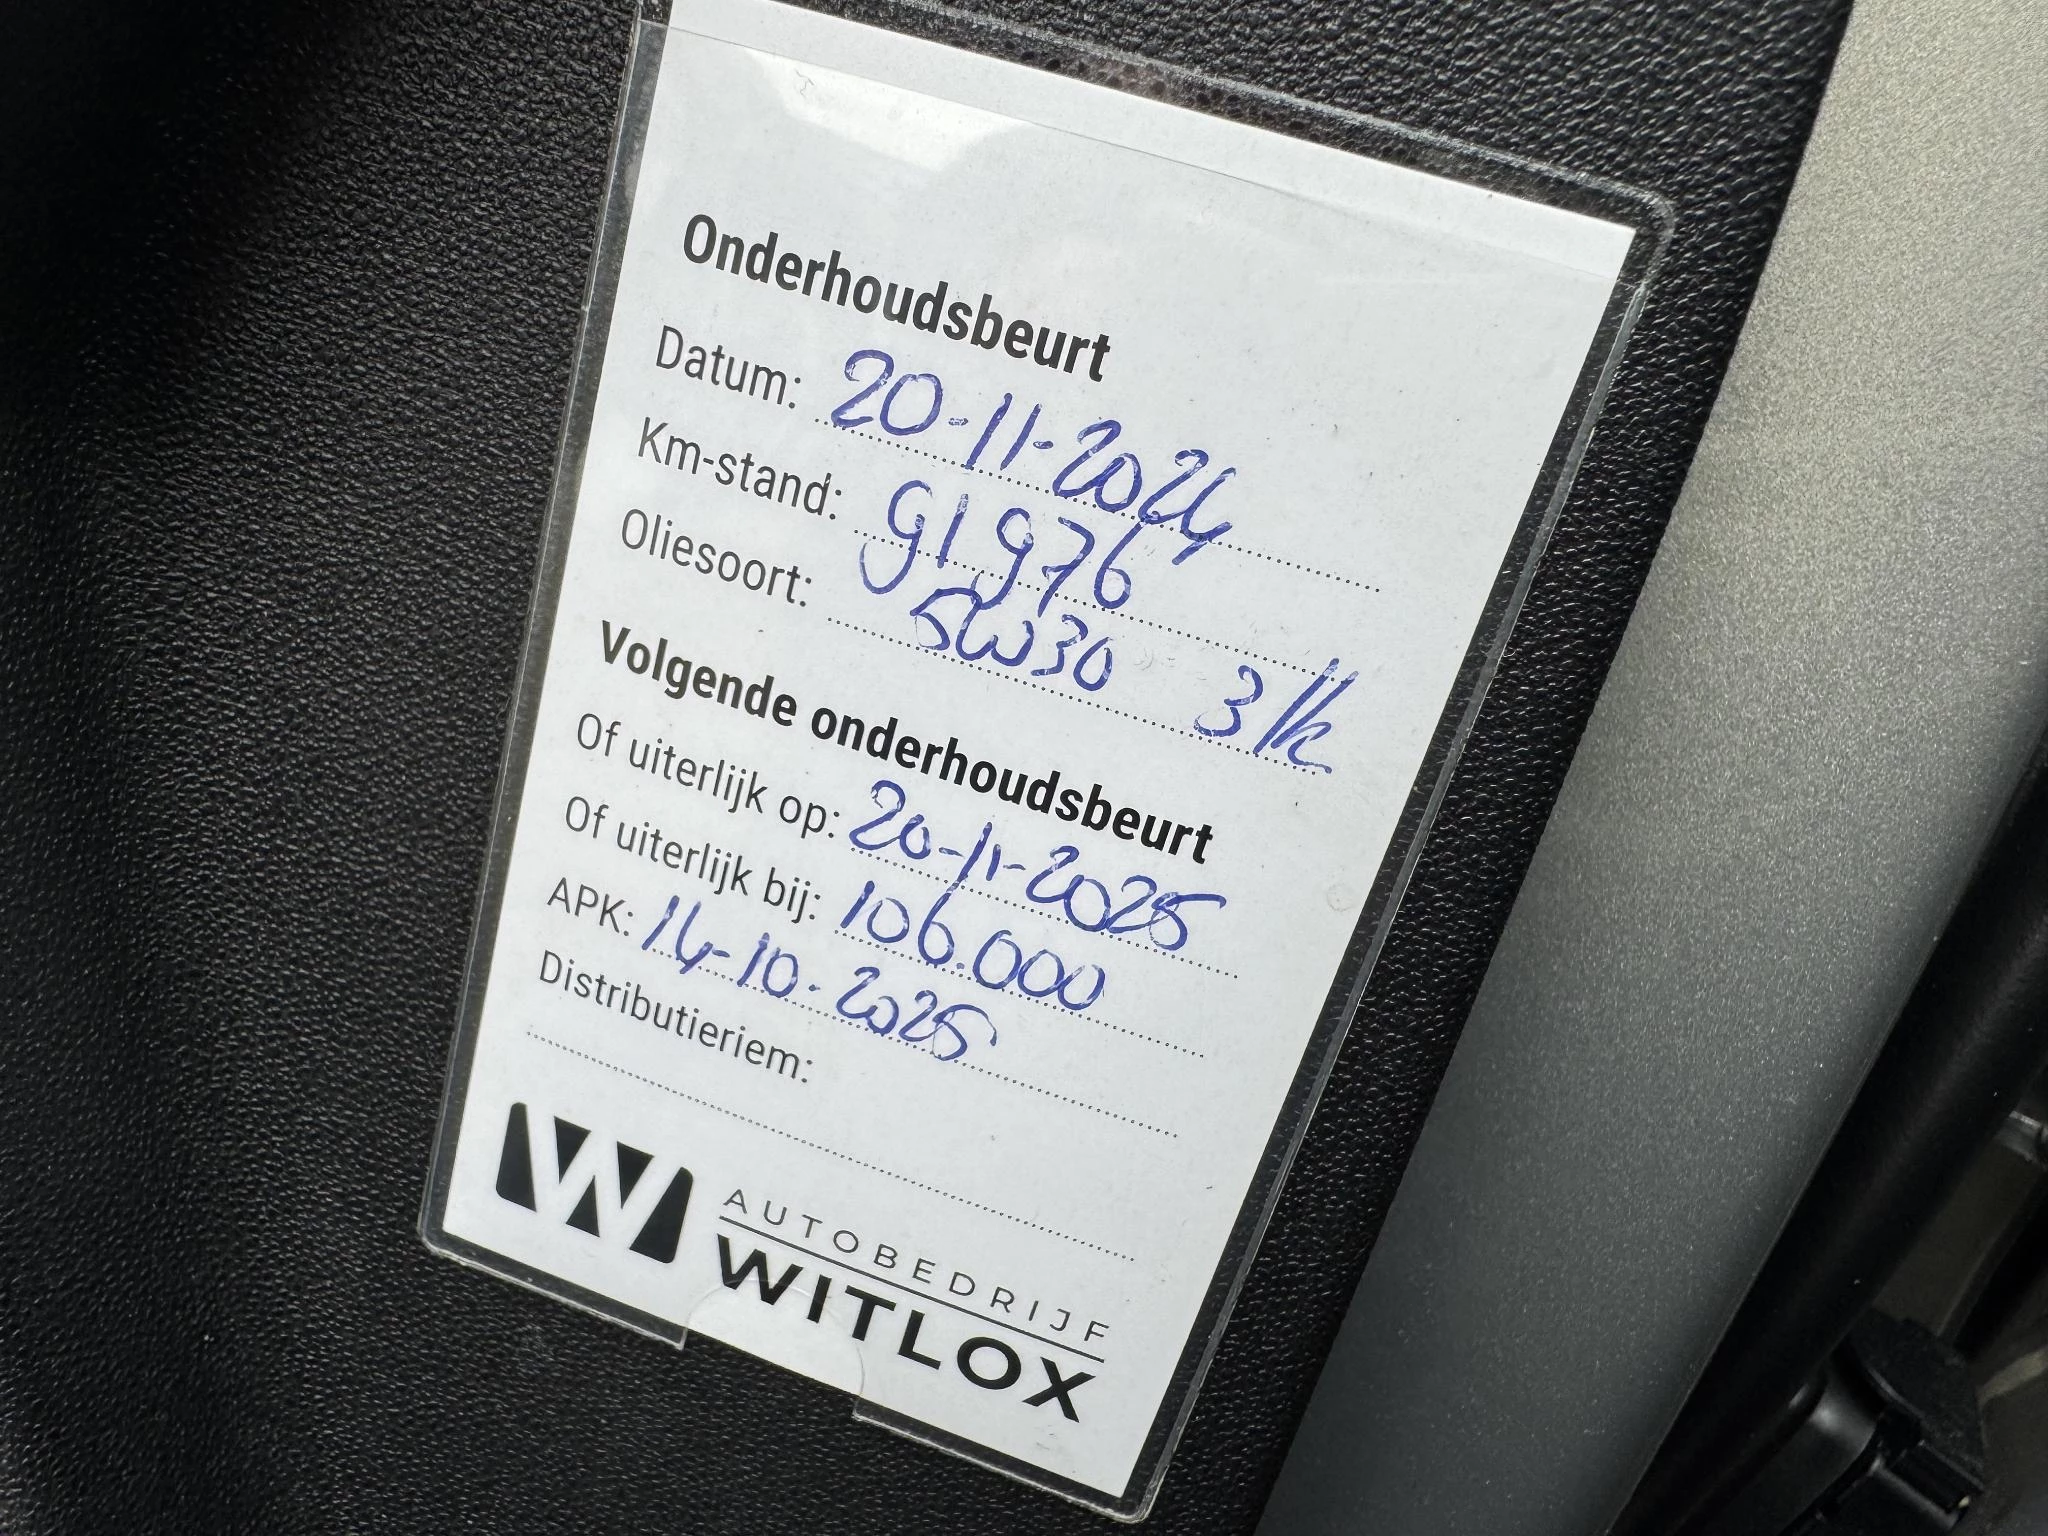 Onderhoudsbeurt
Datum: 20-11-2024
Km-stand: 91976
Oliesoort: 5W30
Volgende onderhoudsbeurt
Of uiterlijk op: 20-11-2025
Of uiterlijk bij: 106.000
APK: 14-10-2025
Distributieriem:
AUTOBEDRIJF
WITLOX